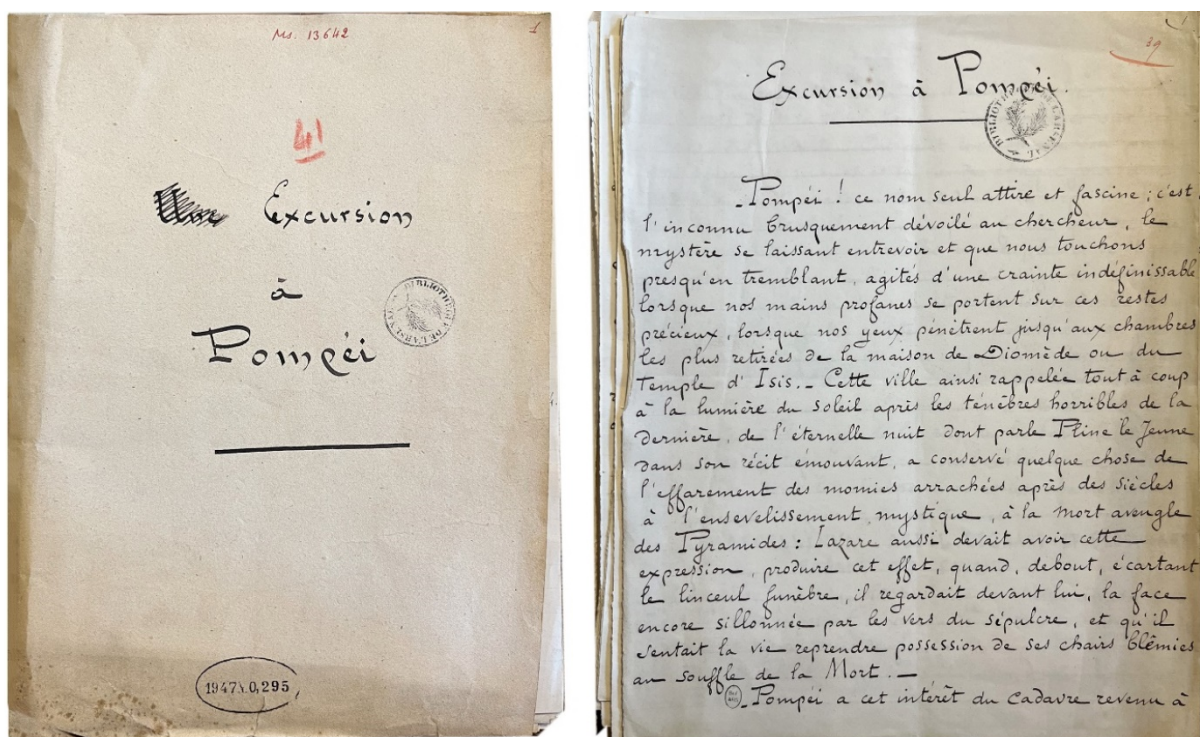 Ms. 13642
1
41
Une Excursion
à
Pompéi
BIBLIOTHÈQUE DE L'ARSENAL
1947 A.O,295
1
39
Excursion à Pompéi.
BIBLIOTHÈQUE DE L'ARSENAL
_Pompéi ! ce nom seul attire et fascine ; c'est
l'inconnu brusquement dévoilé au chercheur, le
mystère se laissant entrevoir et que nous touchons
presqu'en tremblant, agités d'une crainte indéfinissable
lorsque nos mains profanes se portent sur ces restes
précieux, lorsque nos yeux pénètrent jusqu'aux chambres
les plus retirées de la maison de Diomède ou du
Temple d'Isis._ Cette ville ainsi rappelée tout à coup
à la lumière du soleil après les ténèbres horribles de la
dernière, de l'éternelle nuit dont parle Pline le Jeune
dans son récit émouvant, a conservé quelque chose de
l'effarement des momies arrachées après des siècles
à l'ensevelissement mystique, à la mort aveugle
des Pyramides : Lazare aussi devait avoir cette
expression, produire cet effet, quand, debout, écartant
le linceul funèbre, il regardait devant lui, la face
encore sillonnée par les vers du sépulcre, et qu'il
sentait la vie reprendre possession de ses chairs blêmies
au souffle de la Mort._
_Pompéi a cet intérêt du cadavre revenu à